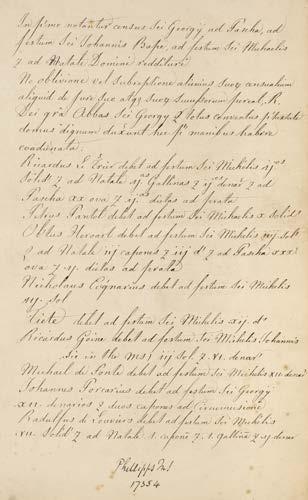 In pſmo notantur census Sci Georgij ad Pascha, ad
festum Sci Johannis Bapt, ad festum Sci Michaelis
⁊ ad Natale Domini redditurū
Ne oblivione vel subreptione alicujus suoꝝ censualium
aliquid de jure suo atqꝫ suoꝝ sumptorum pereat, R.
Dei gr̃a Abbas Sci Georgij ⁊ totus conventus p̱ltextate
domus dignum duxerunt hec p̱ manibus habere
coadunata.
Ricardus le debet ad festum Sci Michelis ijos
Solidt ⁊ ad Natale ijas Gallinas ⁊ ijos denar ⁊ ad
Pascha XX ova ⁊ ij dietas ad prata
Petrus Pantol debet ad festum Sci Michaelis X Solids
Obtus debet ad festum Sci Michelis iiij Solt
⁊ ad Natale iij capones ⁊ iij ds ⁊ ad Pascha XXX
ova ⁊ ij dietas ad prata
Nicholaus Cognarius debet ad festum Sci Michelis
vij. Sol
debet ad festum Sci Michelis xij ds
Ricardus Goine debet ad festum Sci Michelis Johannis
sic in the MS! iij Sol ⁊ VI. denar
Michael de Ponte debet ad festum Sci Michelis XII denar
Johannes Porcarius debet ad festum Sci Georgij
XII denarios ⁊ duos capones ad Circumcisionē
Radulfus de Louviers debet ad festum Sci Michelis
VII Solidt ⁊ ad Natale 1. caponē ⁊ 1. gallinā ⁊ ij denar
Phillipps MS
17354